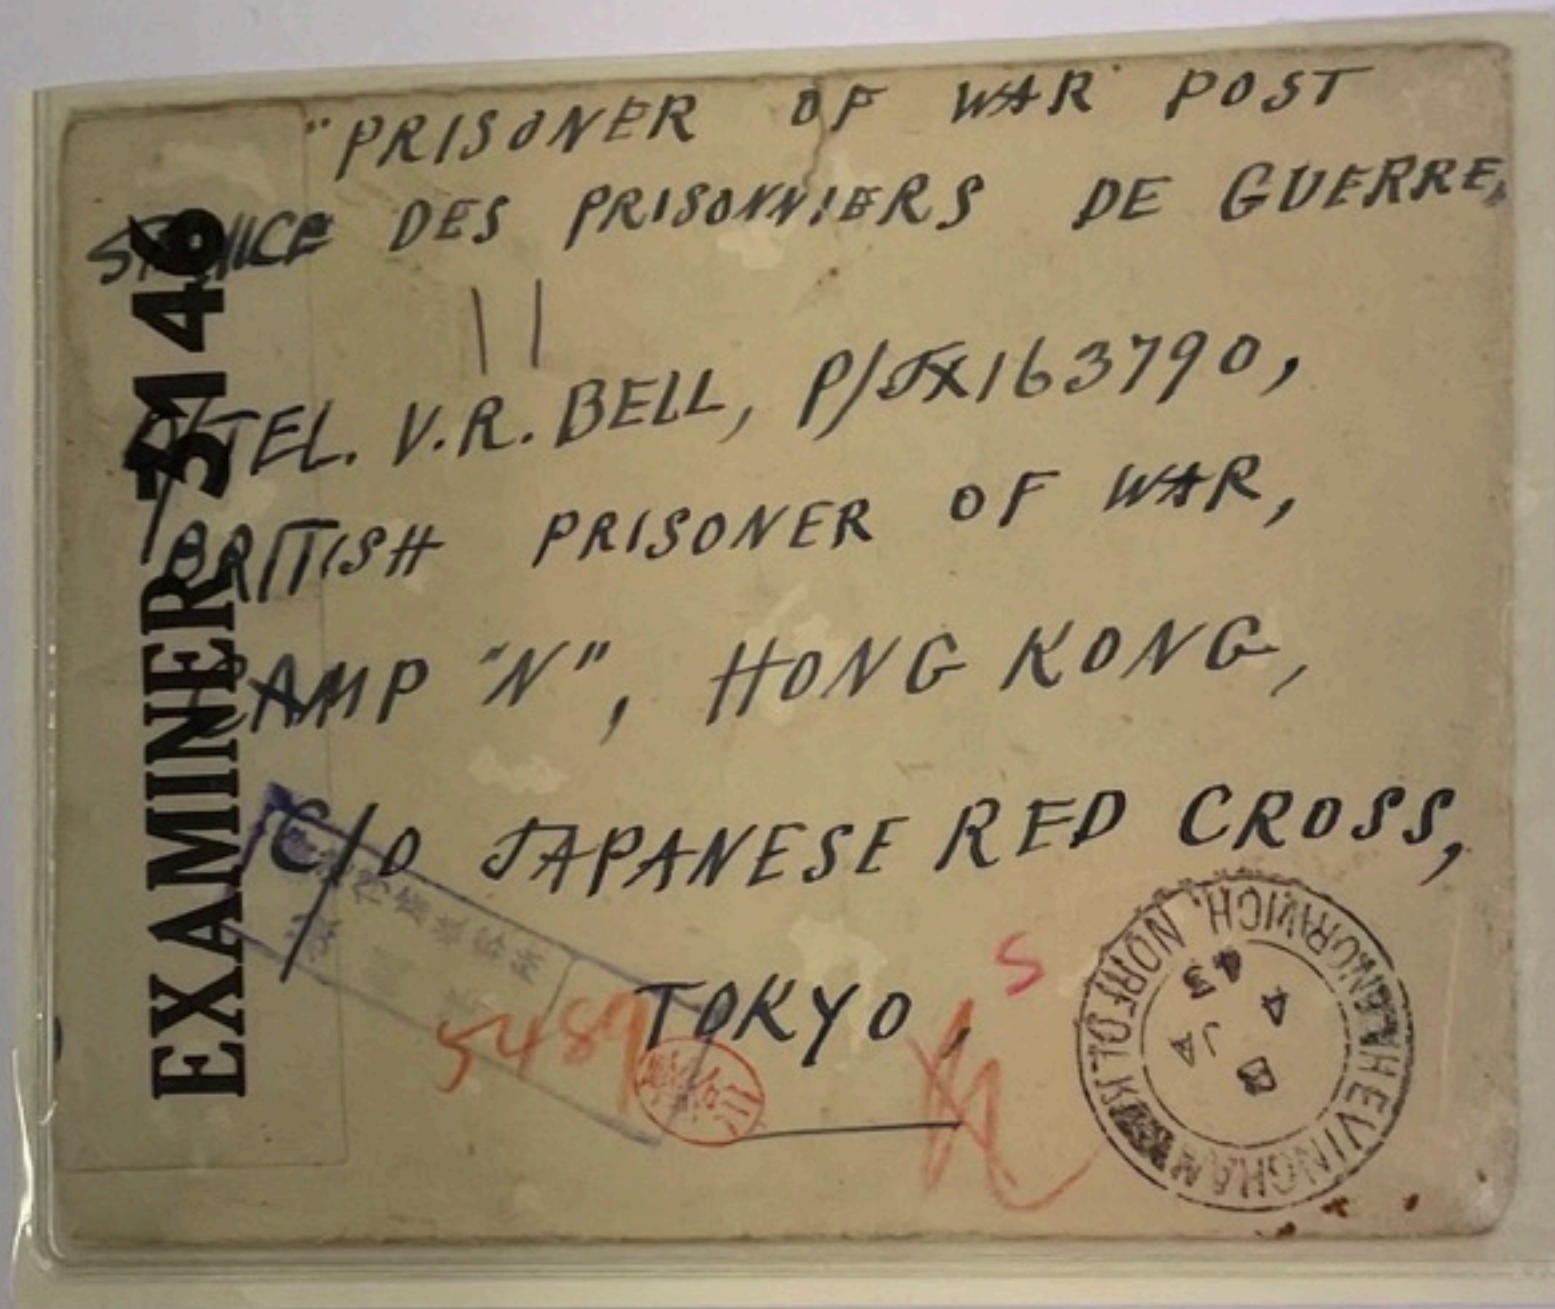 "PRISONER OF WAR POST
SERVICE DES PRISONNIERS DE GUERRE,
O/TEL. V.R. BELL, P/JX163790,
BRITISH PRISONER OF WAR,
CAMP "N", HONG KONG,
C/O JAPANESE RED CROSS,
TOKYO,
EXAMINER 3146
5489
S
HEVINGHAM NORWICH, NORFOLK
B
4 JA
43